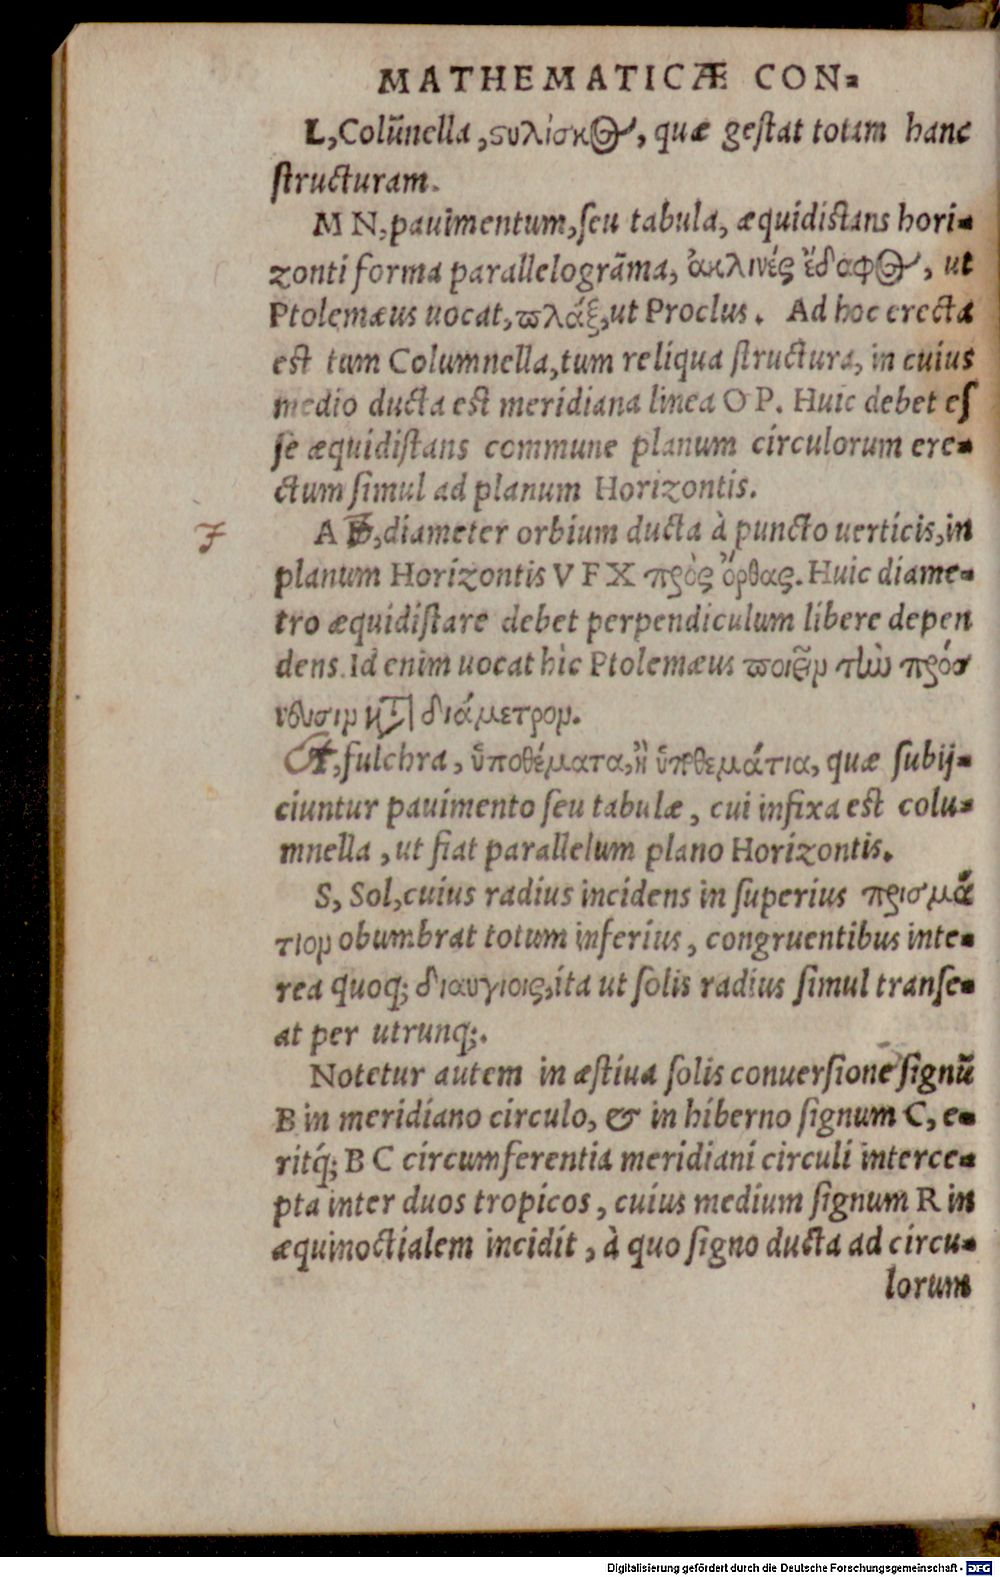 MATHEMATICÆ CON-
L, Colūnella, ϛυλίσκος, quæ geſtat totam hanc
ſtructuram.
M N, pauimentum, ſeu tabula, æquidiſtans hori-
zonti forma parallelogrāma, ἀκλινές ἔδαφος, ut
Ptolemæus uocat, ϖλάξ, ut Proclus. Ad hoc erecta
eſt tum Columnella, tum reliqua ſtructura, in cuius
medio ducta eſt meridiana linea O P. Huic debet eſ
ſe æquidiſtans commune planum circulorum ere-
ctum ſimul ad planum Horizontis.
7
A, diameter orbium ducta à puncto uerticis, in
planum Horizontis V F X πρὸς ὄρθας. Huic diame-
tro æquidiſtare debet perpendiculum libere depen
dens. Id enim uocat hîc Ptolemæus ϖοιεῖν τὼ πρόσ
νευσιν διάμετρον.
fulchra, ὑποθέματα, ἢ ὑποθεμάτια, quæ ſubij-
ciuntur pauimento ſeu tabulæ, cui infixa eſt colu-
mnella, ut fiat parallelum plano Horizontis.
S, Sol, cuius radius incidens in ſuperius πρισμά
τιον obumbrat totum inferius, congruentibus inte-
rea quoq; διαυγιοις, ita ut ſolis radius ſimul tranſe-
at per utrunq;.
Notetur autem in æſtiua ſolis conuerſione ſignū
B in meridiano circulo, & in hiberno ſignum C, e-
ritq́; B C circumferentia meridiani circuli interce-
pta inter duos tropicos, cuius medium ſignum R in
æquinoctialem incidit, à quo ſigno ducta ad circu-
lorum
Digitalisierung gefördert durch die Deutsche Forschungsgemeinschaft - DFG